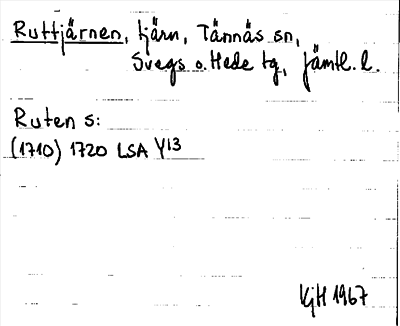 Ruttjärnen, tjärn, Tännäs sn,
Svegs o. Hede tg, Jämtl. l.
Ruten s:
(1710) 1720 LSA Y13
KjH 1967